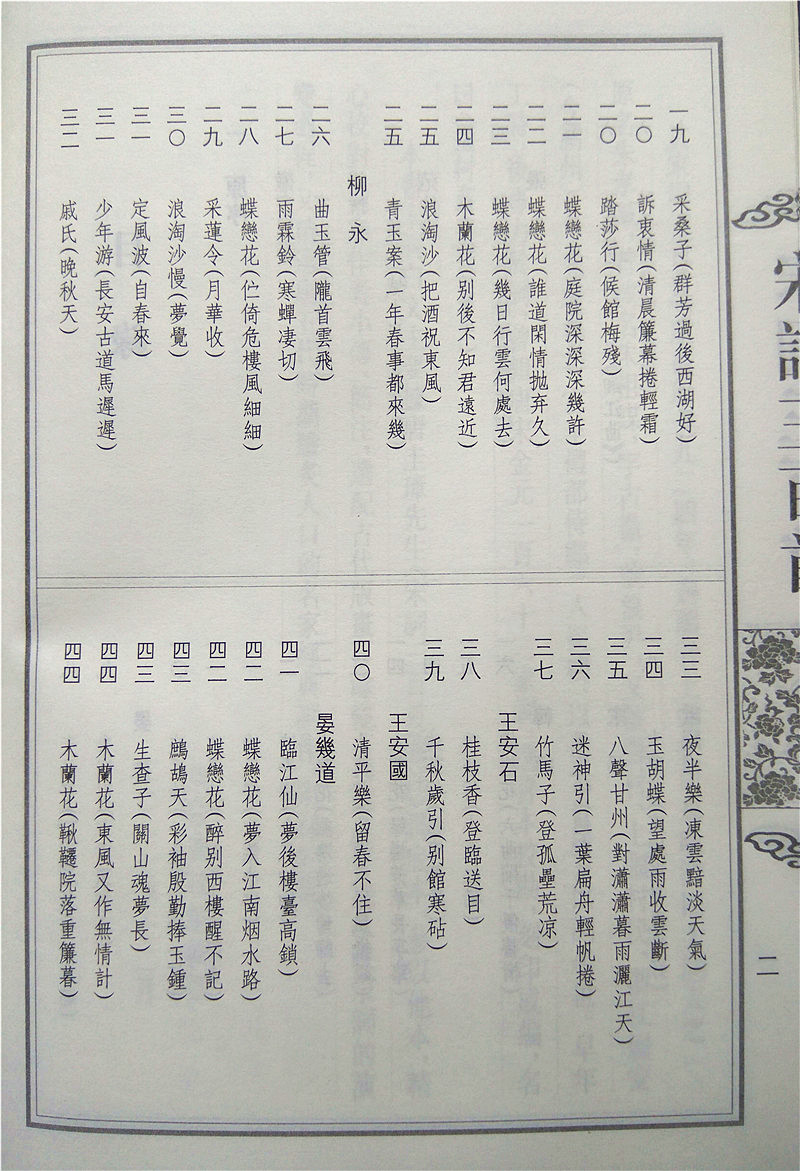 宋詞三百首
二
一九 采桑子(群芳過後西湖好)
二〇 訴衷情(清晨簾幕捲輕霜)
二〇 踏莎行(候館梅殘)
二一 蝶戀花(庭院深深深幾許)
二二 蝶戀花(誰道閑情拋弃久)
二三 蝶戀花(幾日行雲何處去)
二四 木蘭花(別後不知君遠近)
二五 浪淘沙(把酒祝東風)
二五 青玉案(一年春事都來幾)
柳永
二六 曲玉管(隴首雲飛)
二七 雨霖鈴(寒蟬凄切)
二八 蝶戀花(伫倚危樓風細細)
二九 采蓮令(月華收)
三〇 浪淘沙慢(夢覺)
三一 定風波(自春來)
三一 少年游(長安古道馬遲遲)
三二 戚氏(晚秋天)
三三 夜半樂(凍雲黯淡天氣)
三四 玉胡蝶(望處雨收雲斷)
三五 八聲甘州(對瀟瀟暮雨灑江天)
三六 迷神引(一葉扁舟輕帆捲)
三七 竹馬子(登孤壘荒凉)
王安石
三八 桂枝香(登臨送目)
三九 千秋歲引(別館寒砧)
王安國
四〇 清平樂(留春不住)
晏幾道
四一 臨江仙(夢後樓臺高鎖)
四二 蝶戀花(夢入江南烟水路)
四二 蝶戀花(醉別西樓醒不記)
四三 鷓鴣天(彩袖殷勤捧玉鍾)
四三 生查子(關山魂夢長)
四四 木蘭花(東風又作無情計)
四四 木蘭花(鞦韆院落重簾暮)